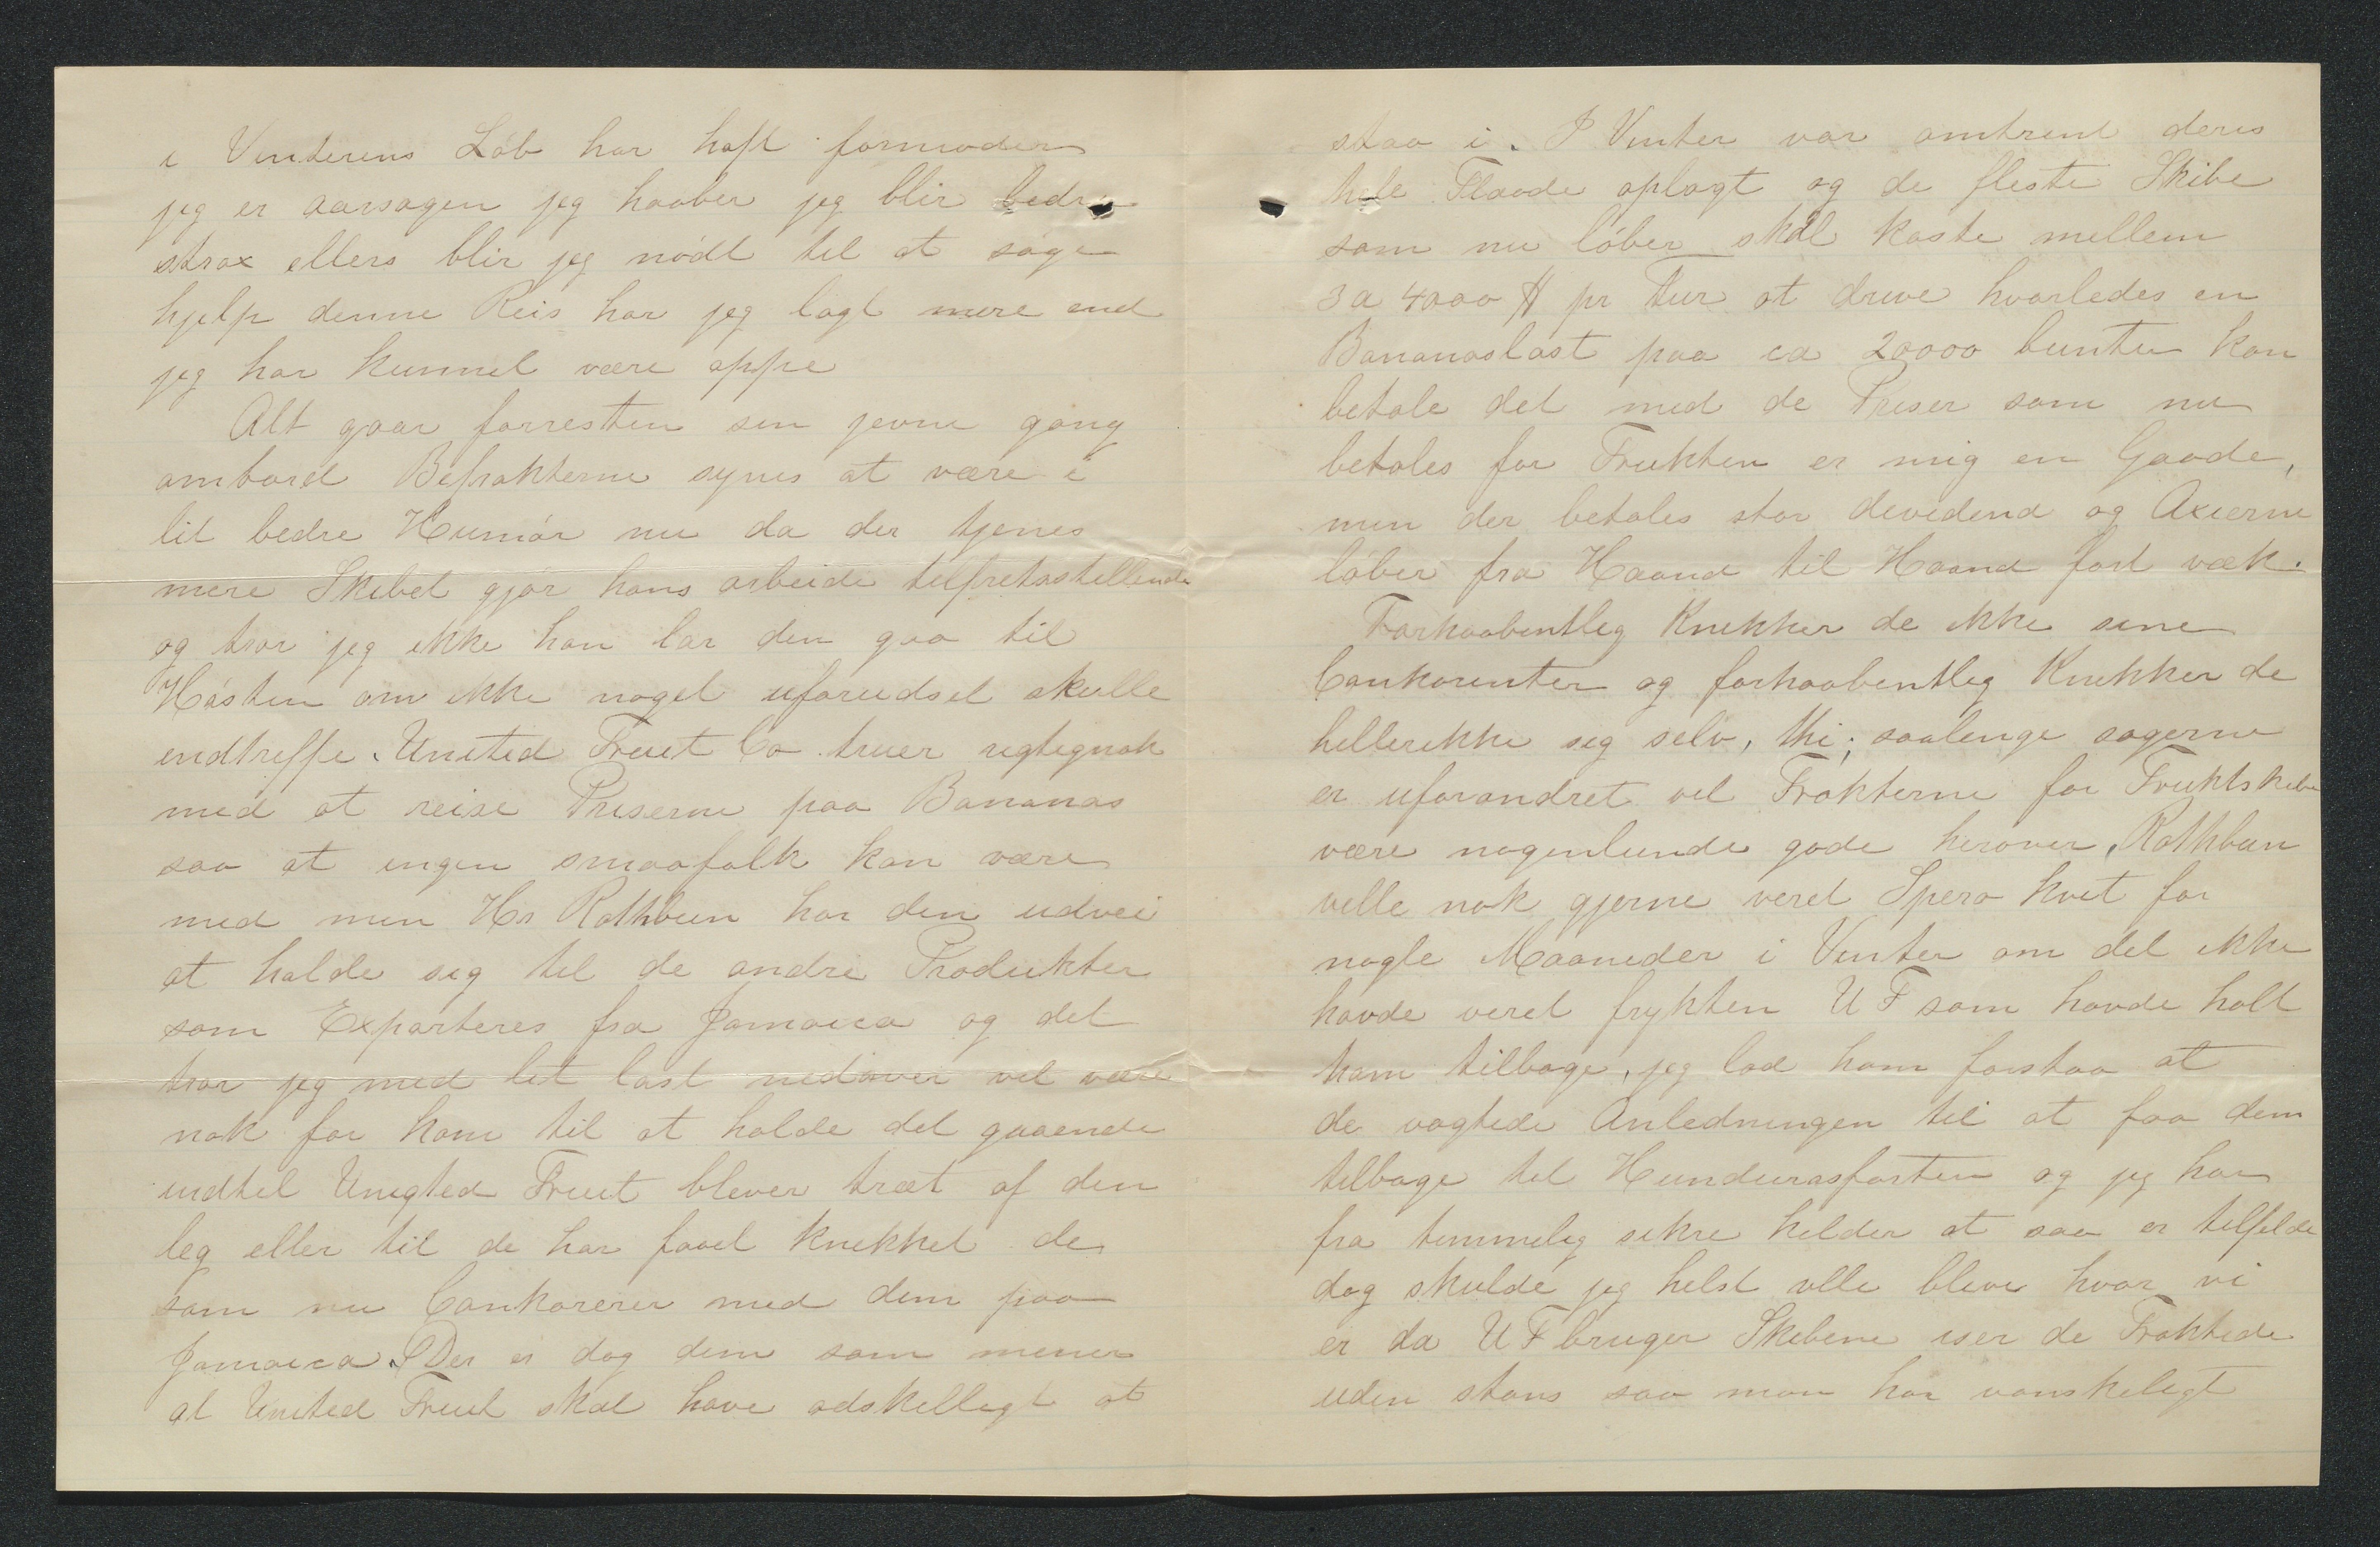 i Vinterens Løb har haft formoder
jeg er aarsagen jeg haaber jeg blir bedre
strax ellers blir jeg nødt til at søge
hjelp denne Reis har jeg lagt mere end
jeg har kunnet være oppe
Alt gaar forresten sin jevne gang
ombord Befrakterne synes at være i
lit bedre Humør nu da der tjenes
mere Skibet gjør hans arbeide tilfretsstillende
og tror jeg ikke han lar den gaa til
Høsten om ikke noget uforudset skulle
indtreffe. United Fruit Co truer rigtignok
med at reise Priserne paa Bananas
saa at ingen smaafolk kan være
med men Hr Rathbun har den udvei
at holde sig til de andre Produkter
som Exporteres fra Jamaica og det
tror jeg med lit last nedover vil være
nok for ham til at holde det gaaende
indtil Unigted Fruit blever træt af den
leg eller til de har faaet knekket de
som nu Conkorerer med dem paa
Jamaica. Der er dog dem som mener
at United Fruit skal have adskelligt at
staa i. I Vinter var omtrent deres
hele Flaade oplagt og de fleste Skibe
som nu løber skal koste mellem
3 a 4000 $ pr Tur at drive hvorledes en
Bananaslast paa ca 20000 bunter kan
betale det med de Priser som nu
betales for Frukten er mig en Gaade,
men der betales stor devedend og Axierne
løber fra Haand til Haand fort væk.
Forhaabentlig Knekker de ikke sine
Conkorenter og forhaabentlig Knekker de
hellerikke sig selv, thi; saalenge sagerne
er uforandret vil Frakterne for Fruktskibe
være nogenlunde gode herover, Rathbun
ville nok gjerne veret Spero kvit for
nogle Maaneder i Vinter om det ikke
havde veret frykten U F som havde holt
ham tilbage, jeg lod ham forstaa at
de vagtede Anledningen til at faa dem
tilbage til Hundurasfarten og jeg har
fra temmelig sikre kilder at saa er tilfelde
dog skulde jeg helst ville blive hvor vi
er da U F bruger Skibene iser de Fraktede
uden stans saa man har vanskeligt